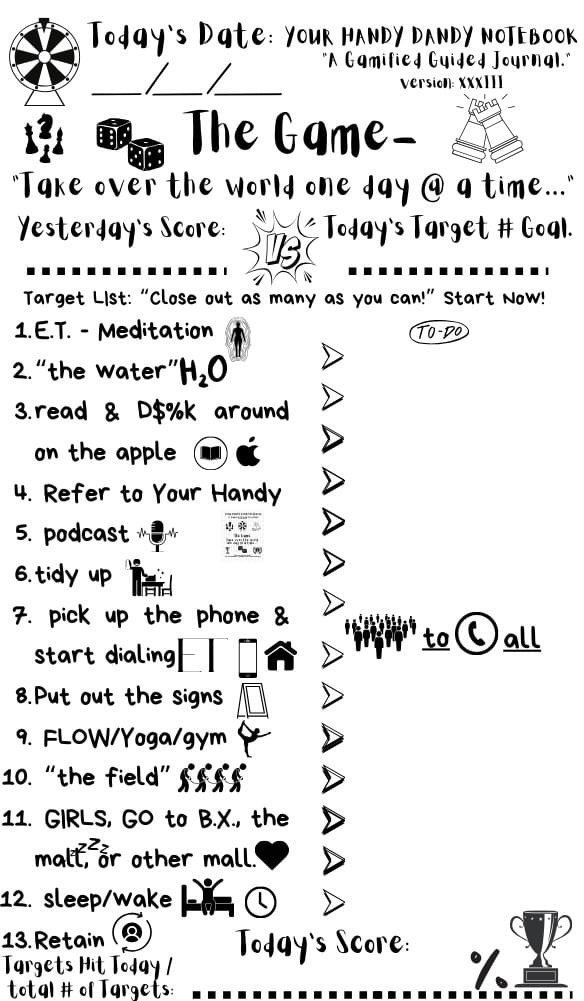 Today's Date: YOUR HANDY DANDY NOTEBOOK
"A Gamified Guided Journal."
version: XXXIII
___/___/____
The Game-
"Take over the world one day @ a time..."
Yesterday's Score:
VS
Today's Target # Goal.
Target LIst: "Close out as many as you can!" Start Now!
TO-DO
1.E.T. - Meditation
2."the water"H₂O
3.read & D$%k around
on the apple
4. Refer to Your Handy
5. podcast
6.tidy up
7. pick up the phone &
start dialing ET
to Call
8.Put out the signs
9. FLOW/Yoga/gym
10. "the field"
11. GIRLS, GO to B.X., the
mall, or other mall.
zzZZ
12. sleep/wake
13.Retain
Today's Score:
Targets Hit Today /
total # of Targets:
%